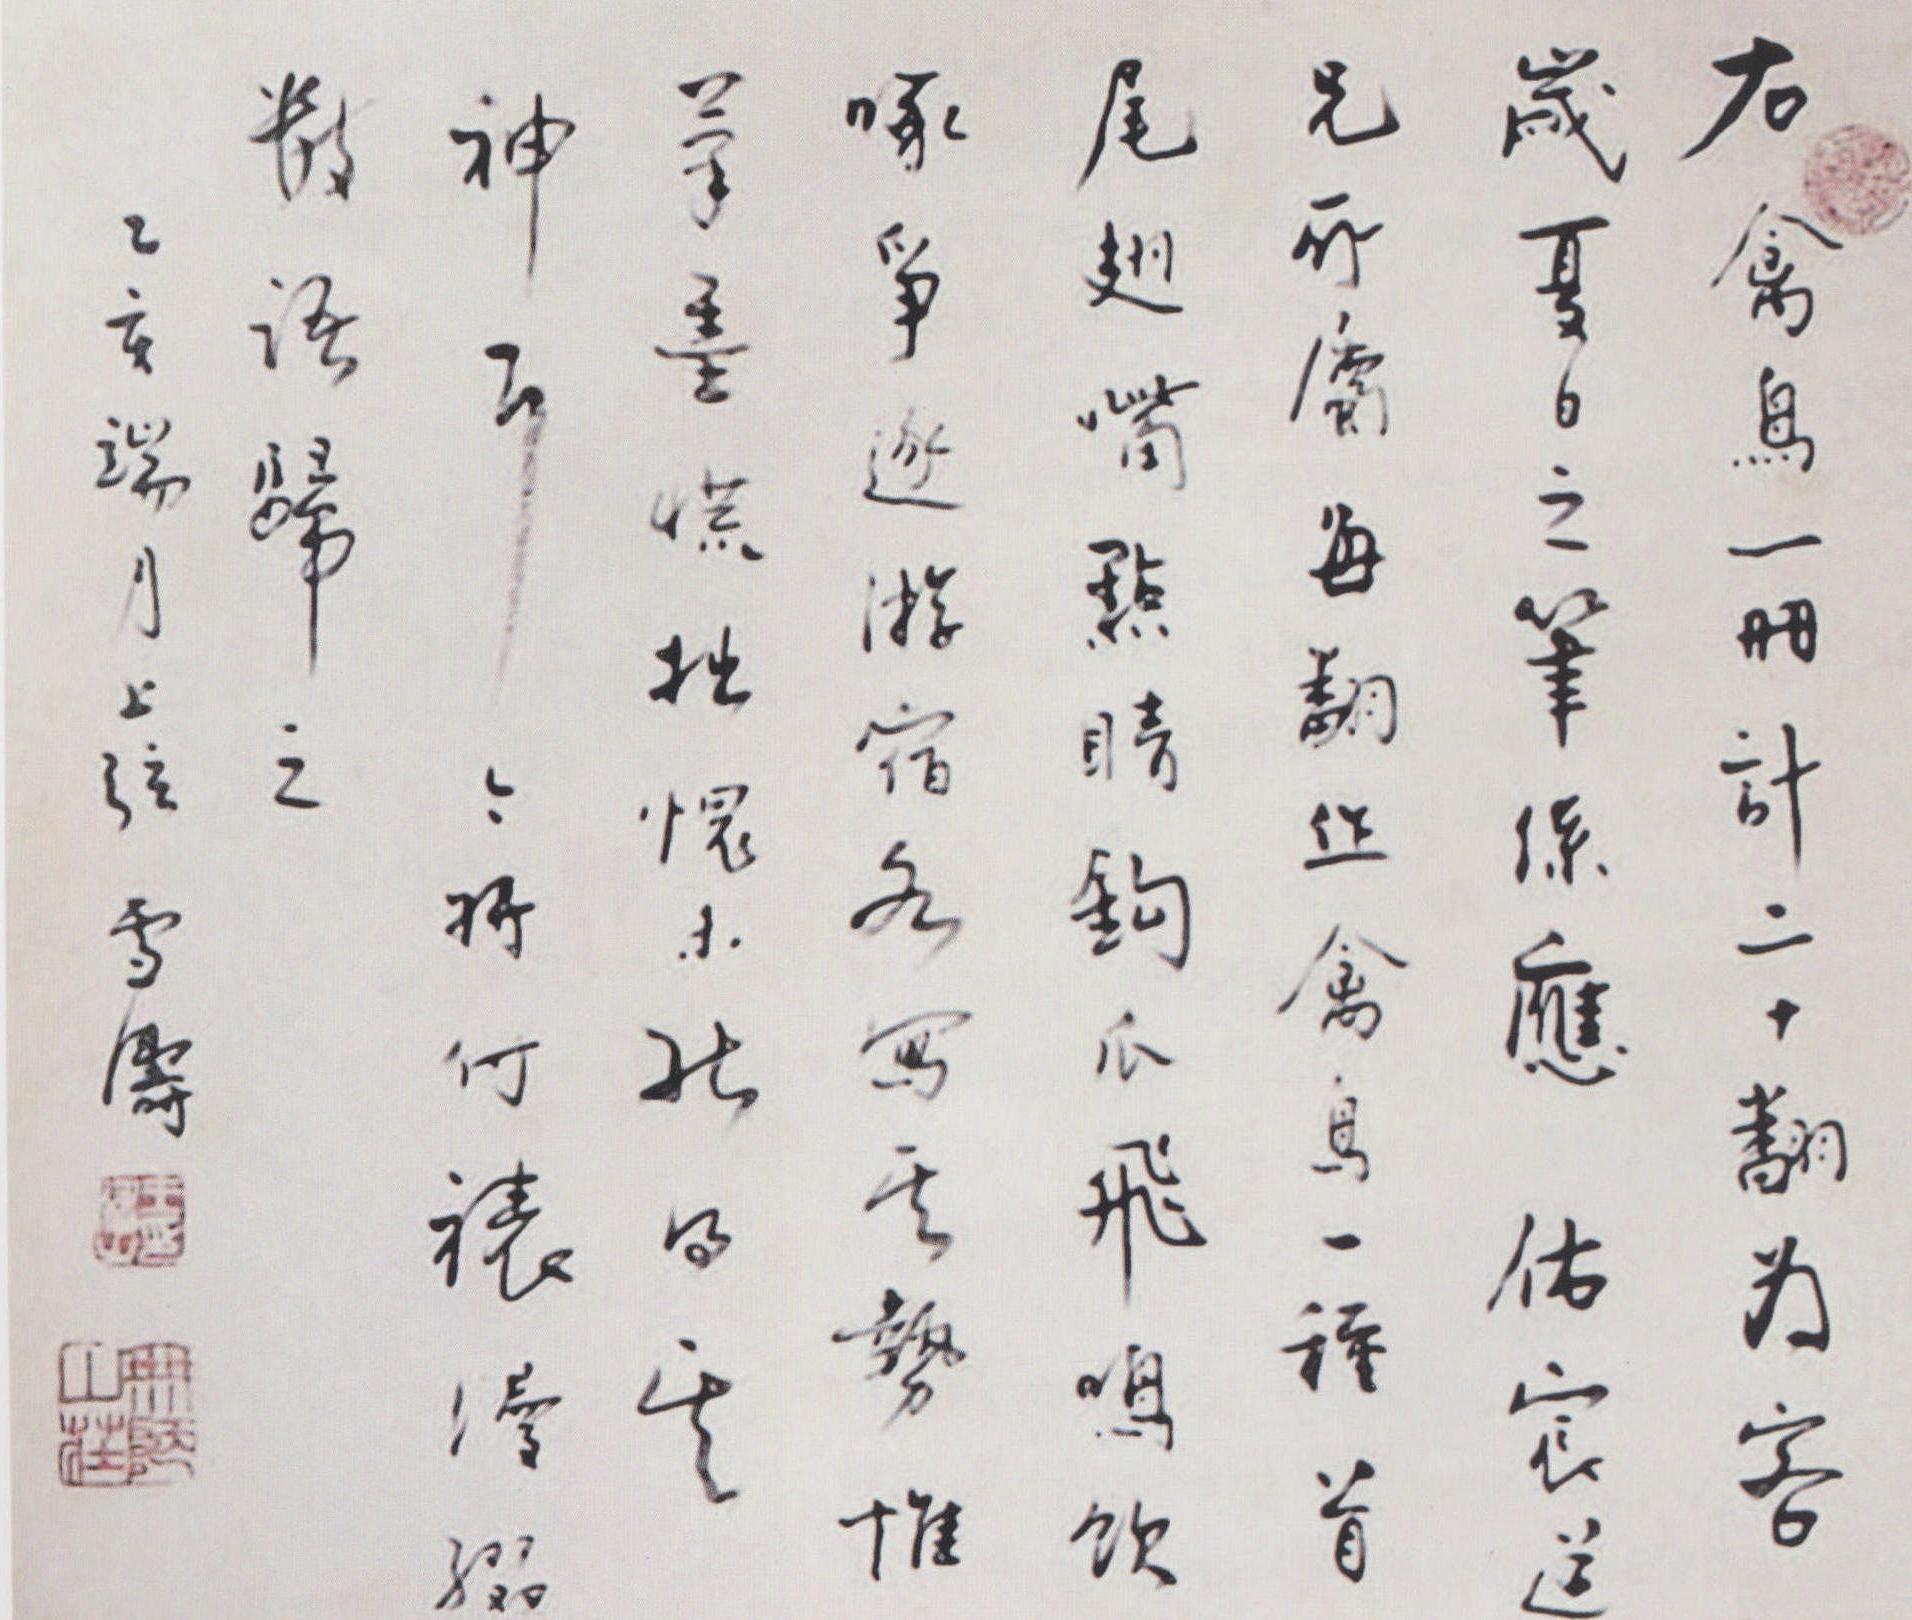 右禽鳥一冊計二十翻為客
歲夏日之筆係應佑宸道
兄所屬每翻作禽鳥一種首
尾翅嘴點睛鈎爪飛鳴飲
啄爭逐游宿各寫其勢惟
筆墨慌拙愧未能得其
神耳今將付裱漫綴
數語歸之
乙亥端月上弦雪濤